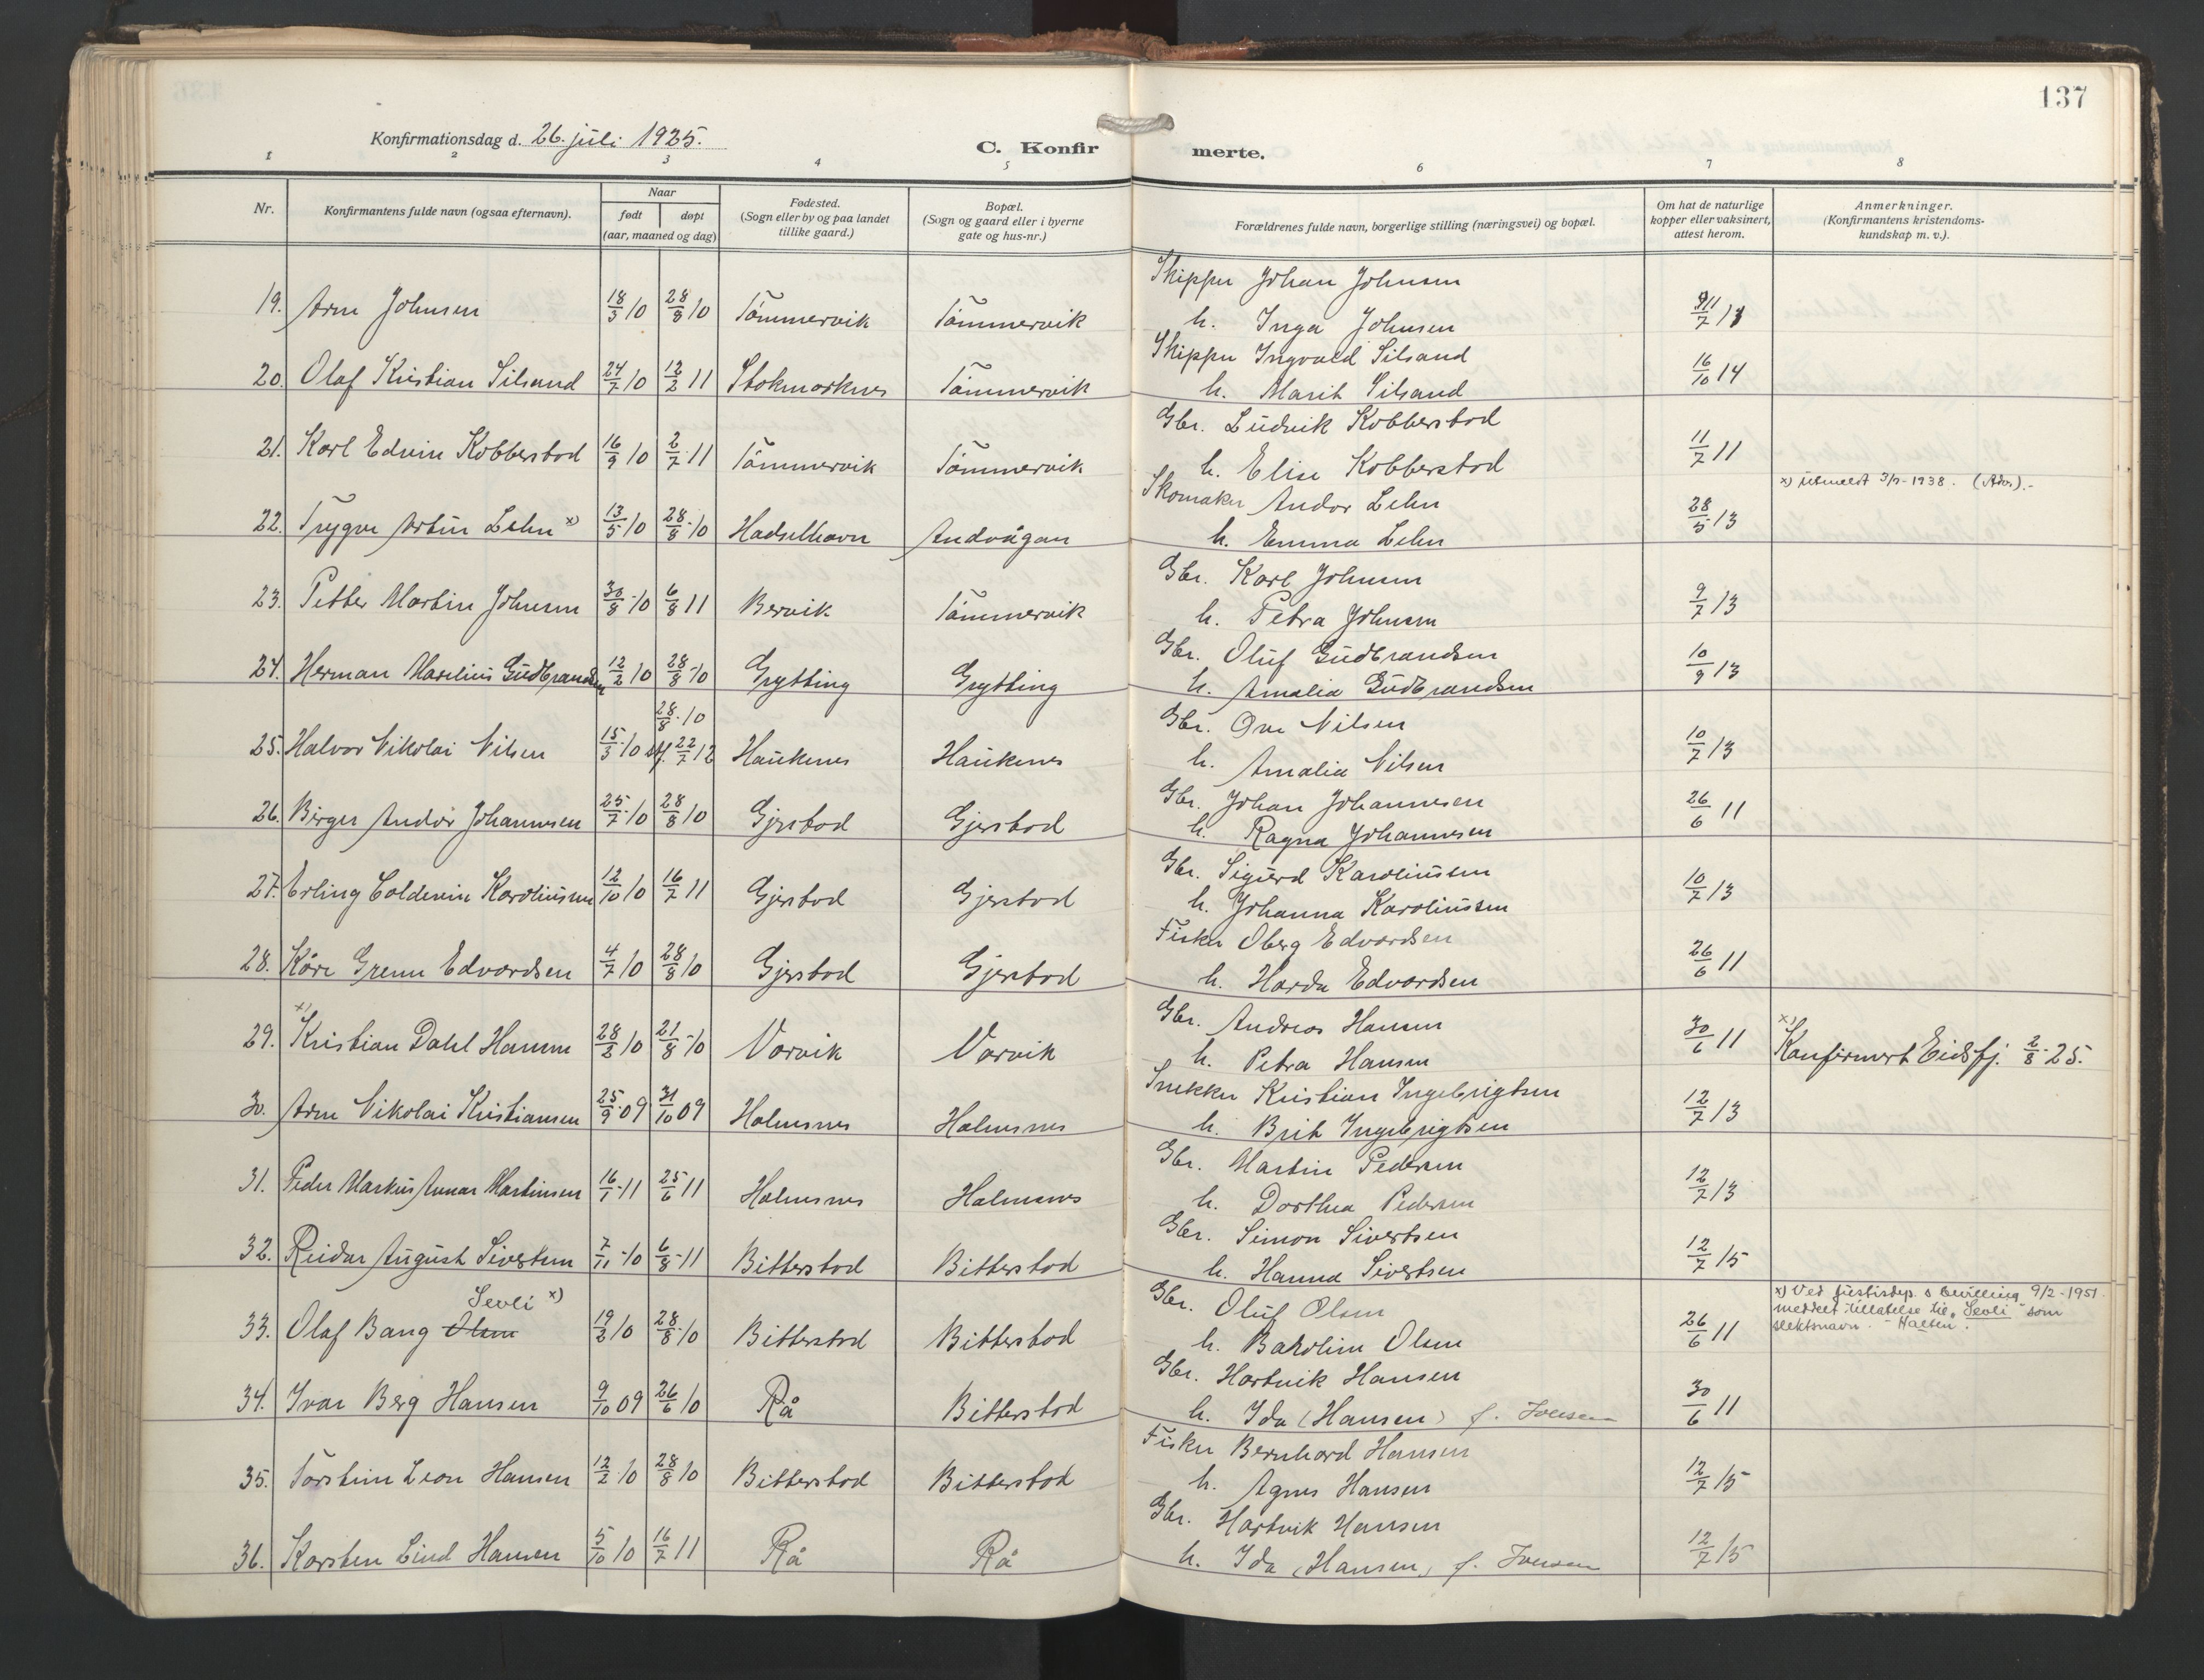 137
Konfirmationsdag d. 26. juli 1925.
C. Konfirmerte.
1 2 3 4 5 6 7 8
Nr.
Konfirmantens fulde navn (ogsaa efternavn).
Naar
født døpt
(aar, maaned og dag)
Fødested.
(Sogn eller by og paa landet
tillike gaard.)
Bopæl.
(Sogn og gaard eller i byerne
gate og hus-nr.)
Forældrenes fulde navn, borgerlige stilling (næringsvei) og bopæl.
Om hat de naturlige
kopper eller vaksinert,
attest herom.
Anmerkninger.
(Konfirmantens kristendoms-
kundskap m. v.).
Skipper Johan Johnsen
19. Arne Johnsen 18/3 10 28/8 10 Tömmervik Tömmervik
h. Inga Johnsen
Skipper Ingvald Silsand
20. Olaf Kristian Silsand 24/7 10 12/2 11 Stokmarknes Tömmervik 16/10 14
h. Marit Silsand
Gbr. Ludvik Kobberstad
21. Karl Edvin Kobberstad 16/9 10 2/7 11 Tömmervik Tömmervik 11/7 11
h. Elise Kobberstad
x) utmeldt 3/9-1938. (Adv.).-
Skomaker Andor Lehn
22. Trygve Artin Lehn x) 13/5 10 28/8 10 Hadselhavn Andvågan 28/5 13
h. Emma Lehn
Gbr. Karl Johnsen
23. Petter Martin Johnsen 30/8 10 6/8 11 Bervik Tömmervik 9/7 13
h. Petra Johnsen
Gbr. Oluf Gudbrandsen
24. Herman Marelius Gudbrandsen 12/2 10 28/8 10 Grytting Grytting 10/9 13
h. Amalia Gudbrandsen
28/8 10
Gbr. Ove Nilsen
25. Halvor Nikolai Nilsen 15/3 10 stf. 22/7 12 Haukenes Haukenes 10/7 13
h. Amalia Nilsen
Gbr. Johan Johannesen
26. Birger Andor Johannesen 25/7 10 28/8 10 Gjerstad Gjerstad 26/6 11
h. Ragna Johannesen
Gbr. Sigurd Karoliussen
27. Erling Coldevin Karoliussen 12/10 10 16/7 11 Gjerstad Gjerstad 10/7 13
h. Johanna Karoliussen
Fisker Oberg Edvardsen
28. Kåre Grenn Edvardsen 4/7 10 28/8 10 Gjerstad Gjerstad 26/6 11
h. Harda Edvardsen
Gbr. Andreas Hansen
29. x) Kristian Dahl Hansen 28/2 10 21/8 10 Varvik Varvik 30/6 11 x) Konfirmert Eidsfj. 2/8-25.
h. Petra Hansen
Snekker Kristian Ingebrigtsen
30. Arne Nikolai Kristiansen 25/9 09 31/10 09 Holmsnes Holmsnes 12/7 13
h. Brit Ingebrigtsen
Gbr. Martin Pedersen
31. Peder Markus Annar Martinsen 16/1 11 25/6 11 Holmsnes Holmsnes 12/7 13
h. Dorthea Pedersen
Gbr. Simon Sivertsen
32. Reidar August Sivertsen 7/11 10 6/8 11 Bitterstad Bitterstad 12/7 15
h. Hanna Sivertsen
Sevli x)
x) Ved justisdep.s bevilling 9/2-1951
meddelt tillatelse til "Sevli" som
slektsnavn. - Halsen.
Gbr. Oluf Olsen
33. Olaf Bang Olsen 19/2 10 28/8 10 Bitterstad Bitterstad 26/6 11
h. Baroline Olsen
Gbr. Hartvik Hansen
34. Ivar Berg Hansen 9/10 09 26/6 10 Rå Bitterstad 30/6 11
h. Ida (Hansen) f. Joensen
Fisker Bernhard Hansen
35. Torstein Leon Hansen 12/2 10 28/8 10 Bitterstad Bitterstad 12/7 15
h. Agnes Hansen
Gbr. Hartvik Hansen
36. Karsten Lind Hansen 5/10 10 16/7 11 Rå Rå 12/7 15
h. Ida (Hansen) f. Joensen